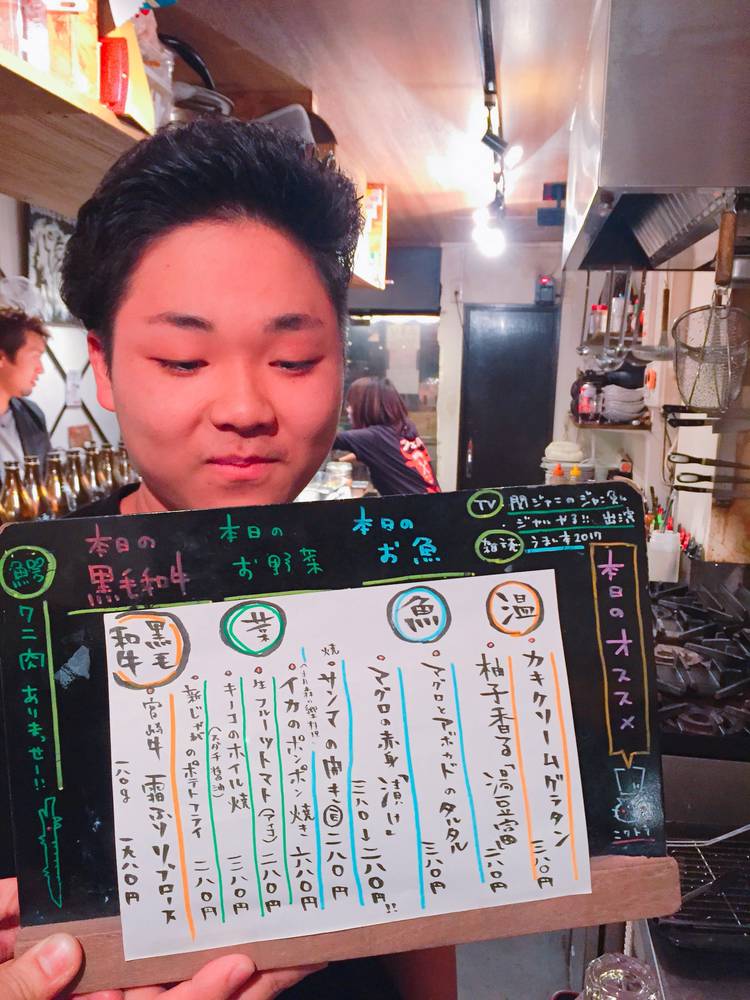 本日のオススメ
TV
関ジャニのジャニ勉
ジャルやる!! 出演
雑誌
うまい本2017
本日の
お魚
本日の
お野菜
本日の
黒毛和牛
鰐
ワニ肉 ありまっせー!!
温
カキクリームグラタン 三八〇円
柚子香る「湯豆腐」 二八〇円
魚
マグロとアボカドのタルタル 三八〇円
マグロの赤身「漬け」 三八〇 二八〇円!!
焼 サンマの開き 二八〇円
イカのポンポン焼き 六八〇円
菜
生フルーツトマト(アイコ) 二八〇円
キノコのホイル焼 三八〇円
(スダチ醤油)
新じゃがのポテトフライ 二八〇円
黒毛
和牛
宮崎牛 霜ふりリブロース
一八〇g 一九八〇円